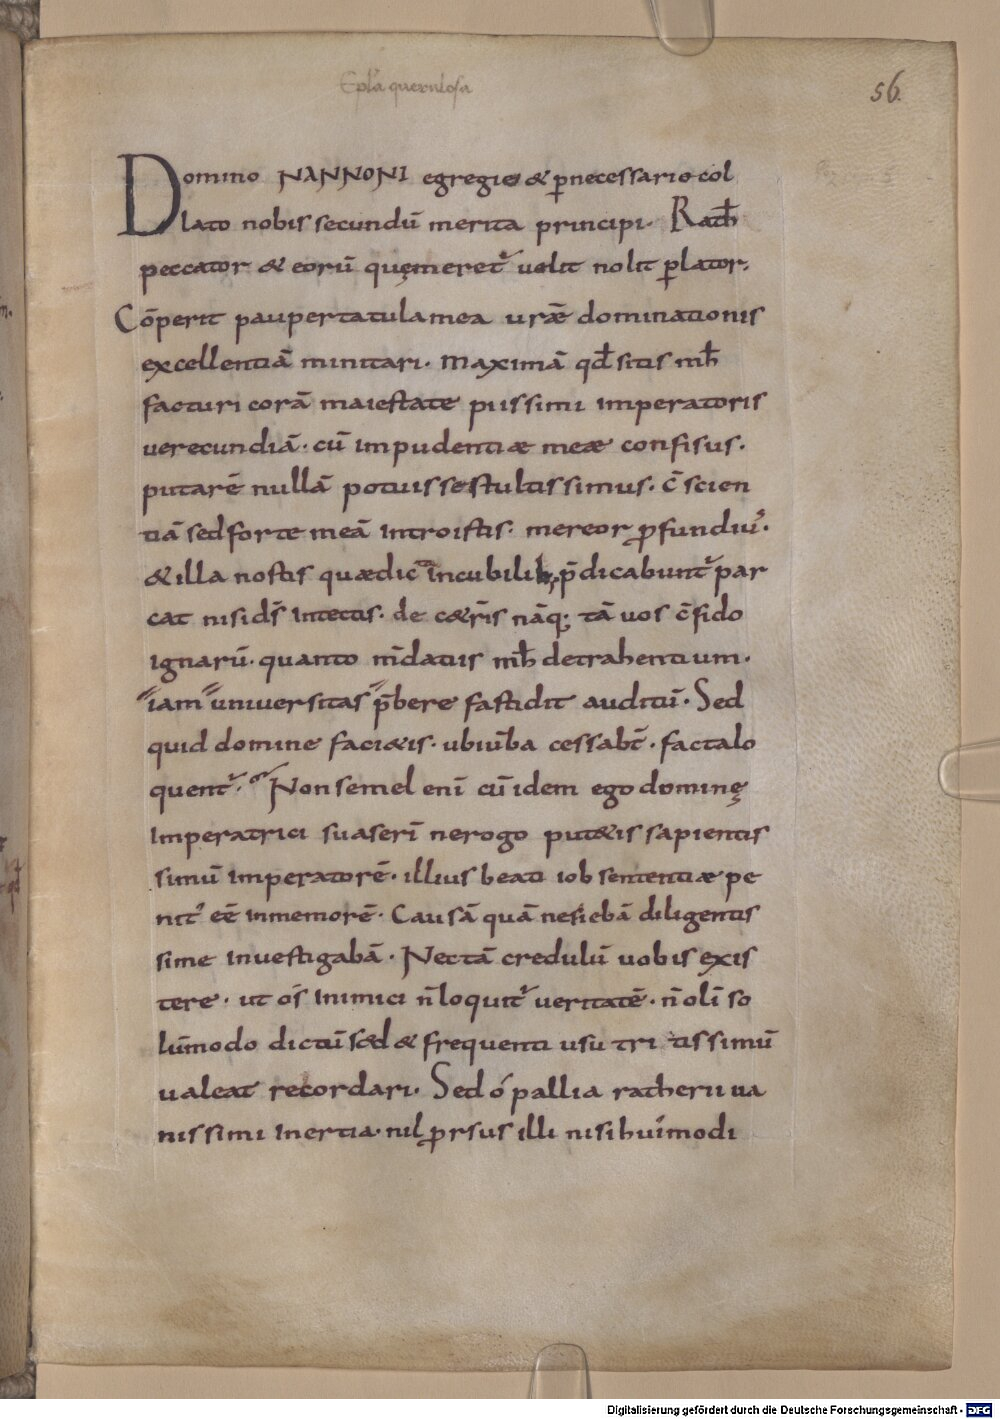 Epl̃a querulosa
56.
Domino NANNONI egregio & p̲necessario col
lato nobis secundū merita principi. Rath̄
peccator & eorū quęmeret᷒ uelit nolit p̲lator.
Cōperit paupertatulamea urǣ dominationis
excellentiā minitari. Maximā qd̄ sitis mh̄
facturi corā maiestate piissimi imperatoris
uerecundiā. cū impudentiæ meæ confisus.
putarē nullā potuisse stultissimus. c̄scien
tiā sedforte meā introistis. mereor p̱fundiu᷒.
& illa nostis quædicta incubilib; p̄dicabunt᷒ par
cat nisi ds̄ intectis. de c&er̄is nāq; tā uos c̄fido
ignarū. quanto m̄datiis mh̄ detrahentium.
iam uniuersitas p̄bere fastidit auditū. Sed
quid domine faci&is. ubiūba cessab̄t. facta lo
quent᷒. Non semel enī cū idem ego dominę
imperatrici suaserī nerogo put&is sapientis
simū imperatorē. illius beati iob sententiæ pe
nit᷒ eē inmemorē. Causā quā nesiebā diligentis
sime inuestigabā. Nectā credulū uobis exis
tere. ut os̄ inimici n̄ loquit᷒ ueritatē. n̄ olī so
lūmodo dictū s&d & frequenti usu tri tissimū
ualeat recordari. Sed ó pallia ratherii ua
nissimi inertia. nil p̱rsus illi nisi huīmodi
Digitalisierung gefördert durch die Deutsche Forschungsgemeinschaft - DFG